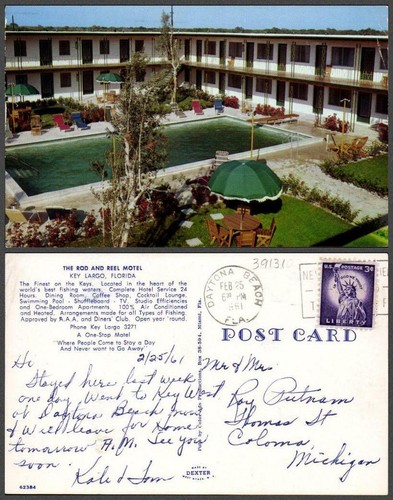 39131
THE ROD AND REEL MOTEL
KEY LARGO, FLORIDA
The Finest on the Keys. Located in the heart of the
world's best fishing waters. Complete Hotel Service 24
Hours. Dining Room, Coffee Shop, Cocktail Lounge,
Swimming Pool - Shuffleboard - TV, Studio Efficiencies
and One-Bedroom Apartments. 100% Air Conditioned
and Heated. Arrangements made for all Types of Fishing
Approved by N.A.A. and Diners' Club. Open year 'round.
Phone Key Largo 3271
A One-Stop Motel
"Where People Come to Stay a Day
And Never want to Go Away"
2/25/61
Hi
Stayed here last week
one day. Went to Key West
at Daytona Beach now
& will leave for home
tomorrow A.M. See you
soon.
Kale & Tom
62384
MADE BY
DEXTER
DAYTONA BEACH
FEB 25
6 PM
1961
FLA.
U.S. POSTAGE 3¢
LIBERTY
POST CARD
Mr & Mrs
Roy Putnam
Thomas St
Coloma,
Michigan